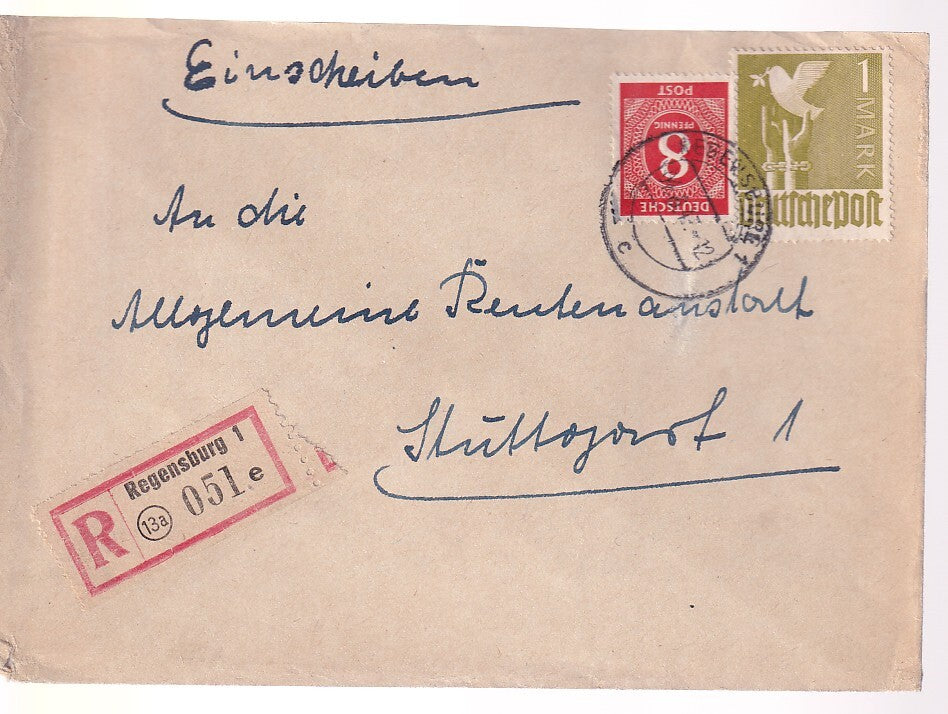 Einscheiben
POST
PFENNIG
8
DEUTSCHE
1 MARK
Deutsche Post
REGENSBURG 1
c
An die
Allgemeine Rentenanstalt
Stuttgart 1
R
Regensburg 1
13a
051 e